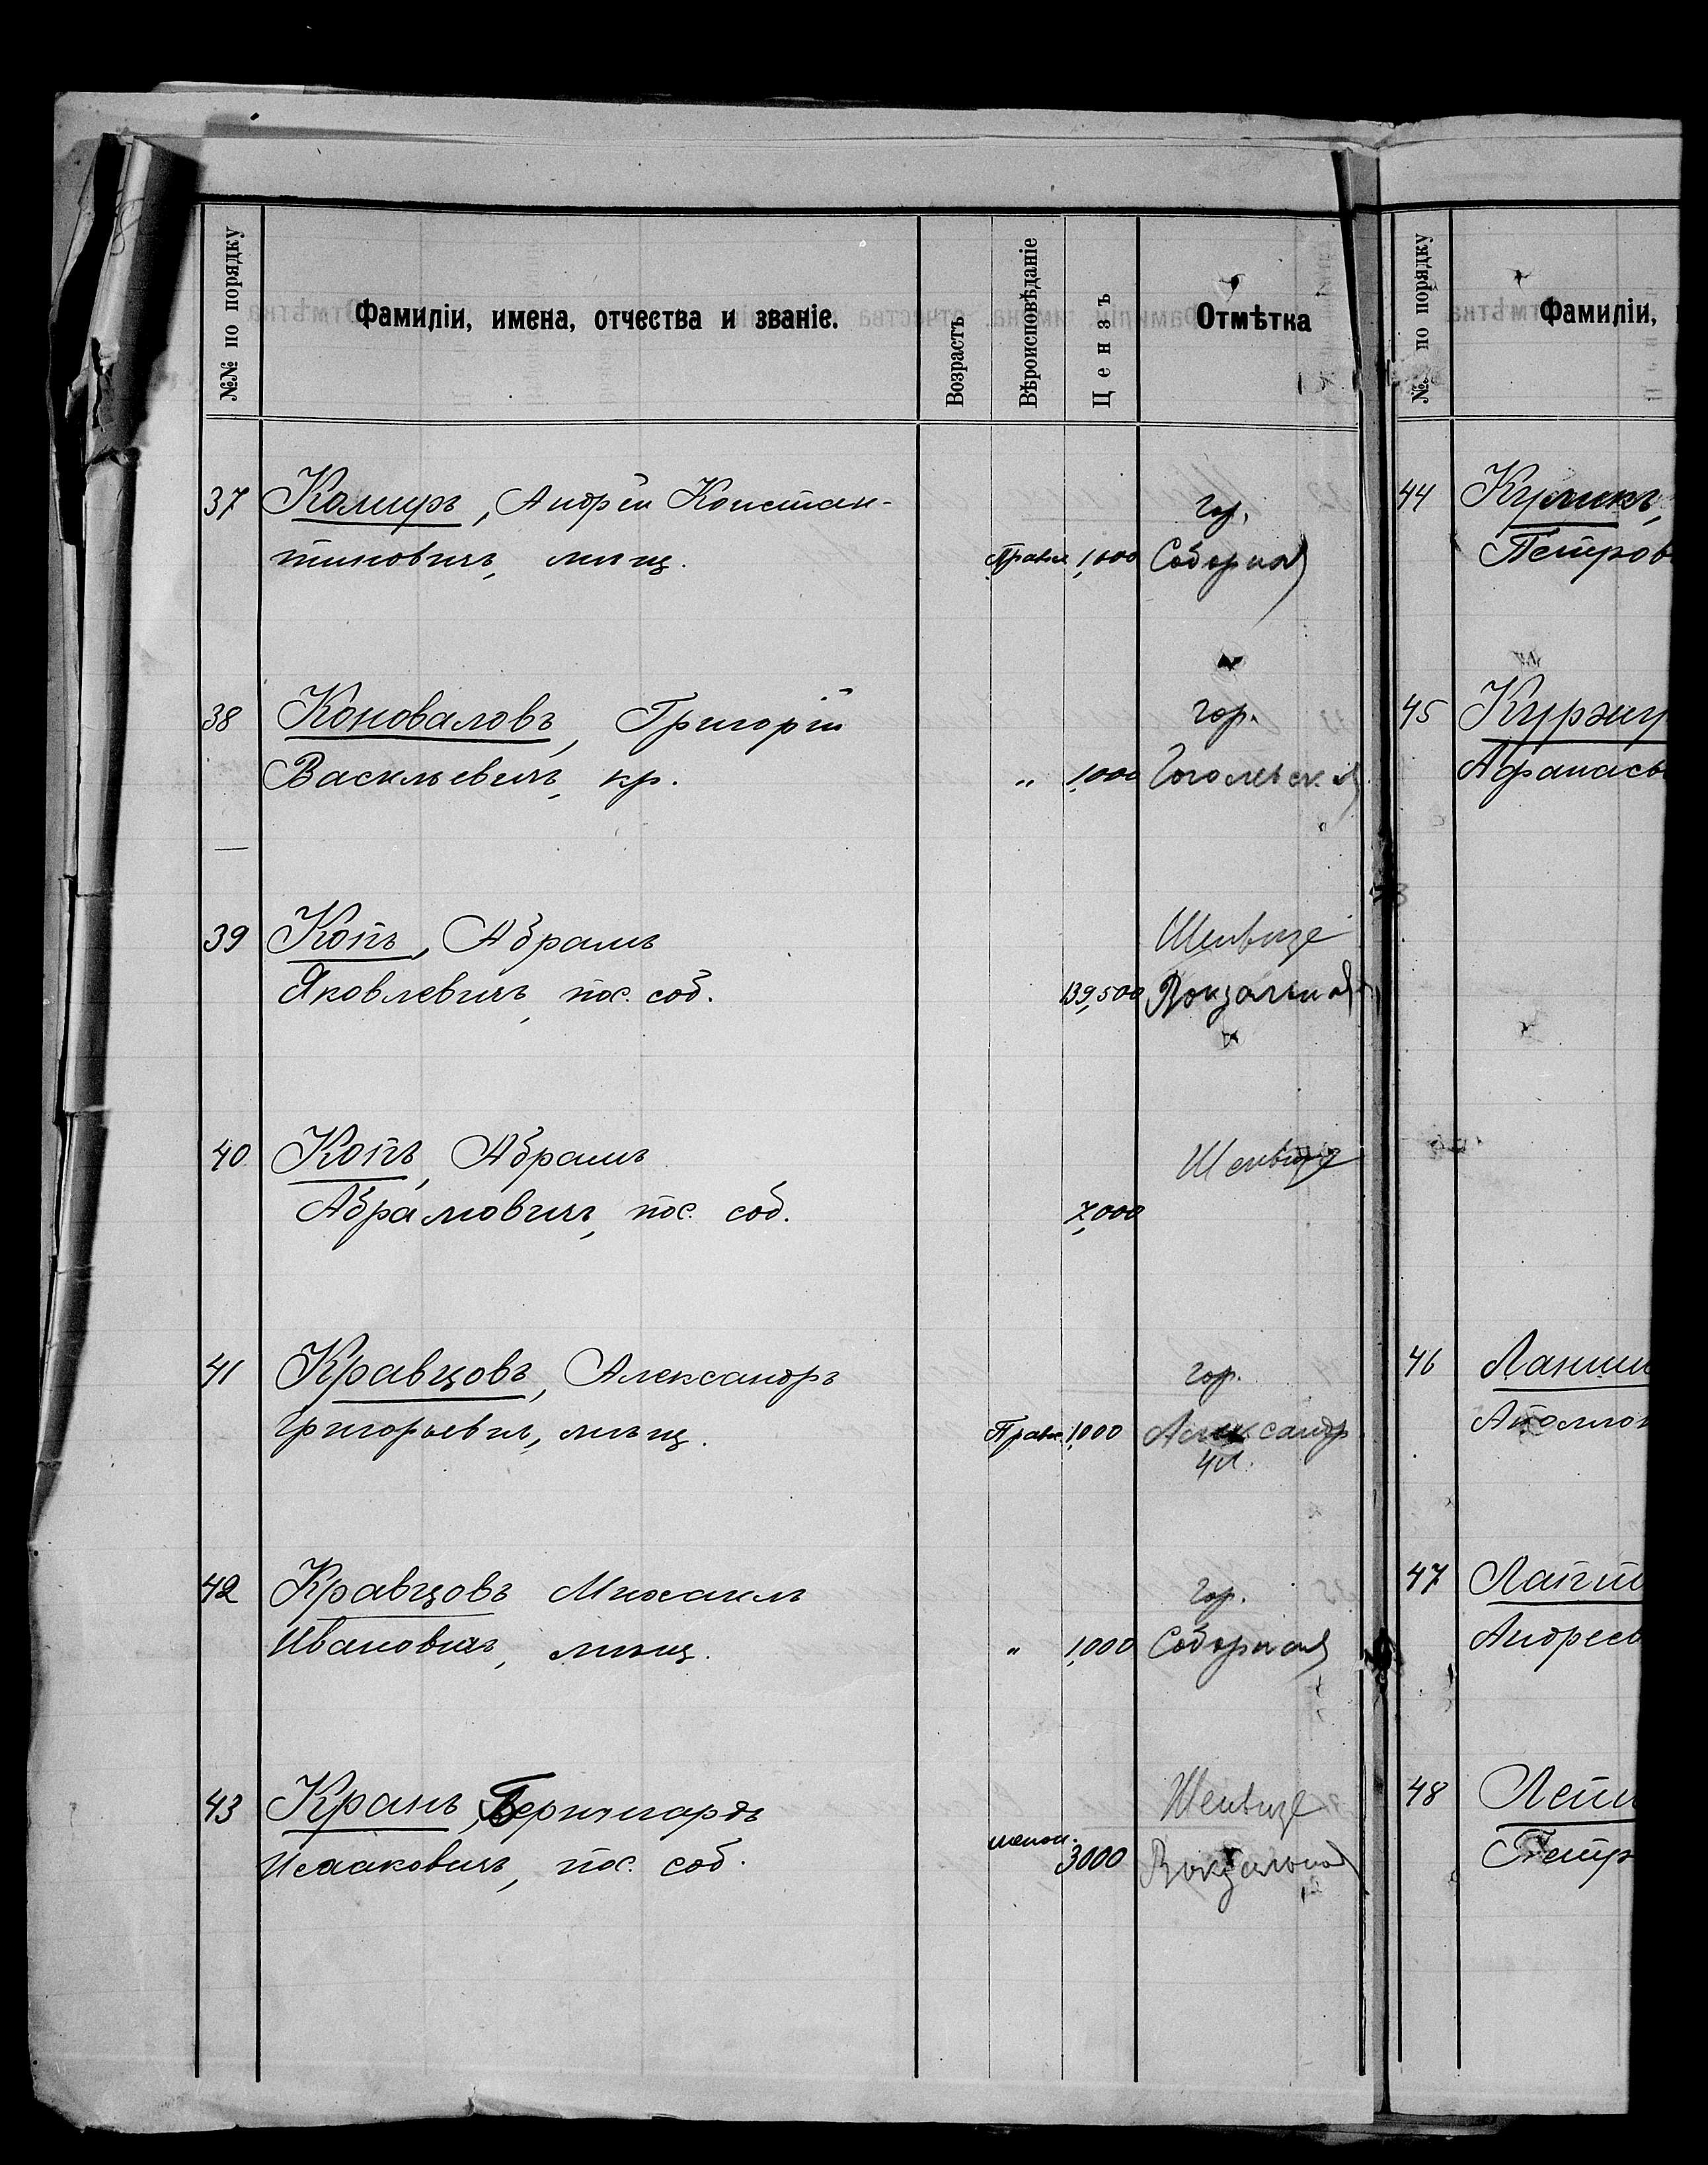 №№ по порядку
Фамиліи, имена, отчества и званіе.
Возрастъ
Вѣроисповѣданіе
Цензъ
Отмѣтка
37 Андрей Констан-
тиновичъ, мѣщ. Правсл 1,000
Гор.
Соборная
38 Коноваловъ, Григорій
Васильевичъ, кр. „ 1,000
Гор.
Гогольевск.
39 Копъ, Абрамъ
Яковлевичъ, пос. соб. 139,500
Шенвизе
Вокзальная
40 Копъ, Абрамъ
Абрамовичъ, пос. соб. 7,000
Шенвизе
41 Кравцовъ, Александръ
Григорьевич, мѣщ. Правсл. 1,000
Гор.
Александр
ул.
42 Кравцовъ Михаилъ
Ивановичъ, мѣщ. „ 1,000
Гор.
Соборная
43 Кранъ, Бернгардъ
Исааковичъ, пос. соб. менон. 3000
Шенвизе
Вокзальная
№ по порядку
Фамиліи,
44 Куликъ,
Петров
45
Афанасье
46
Аполлон
47
Андреев
48
Петр